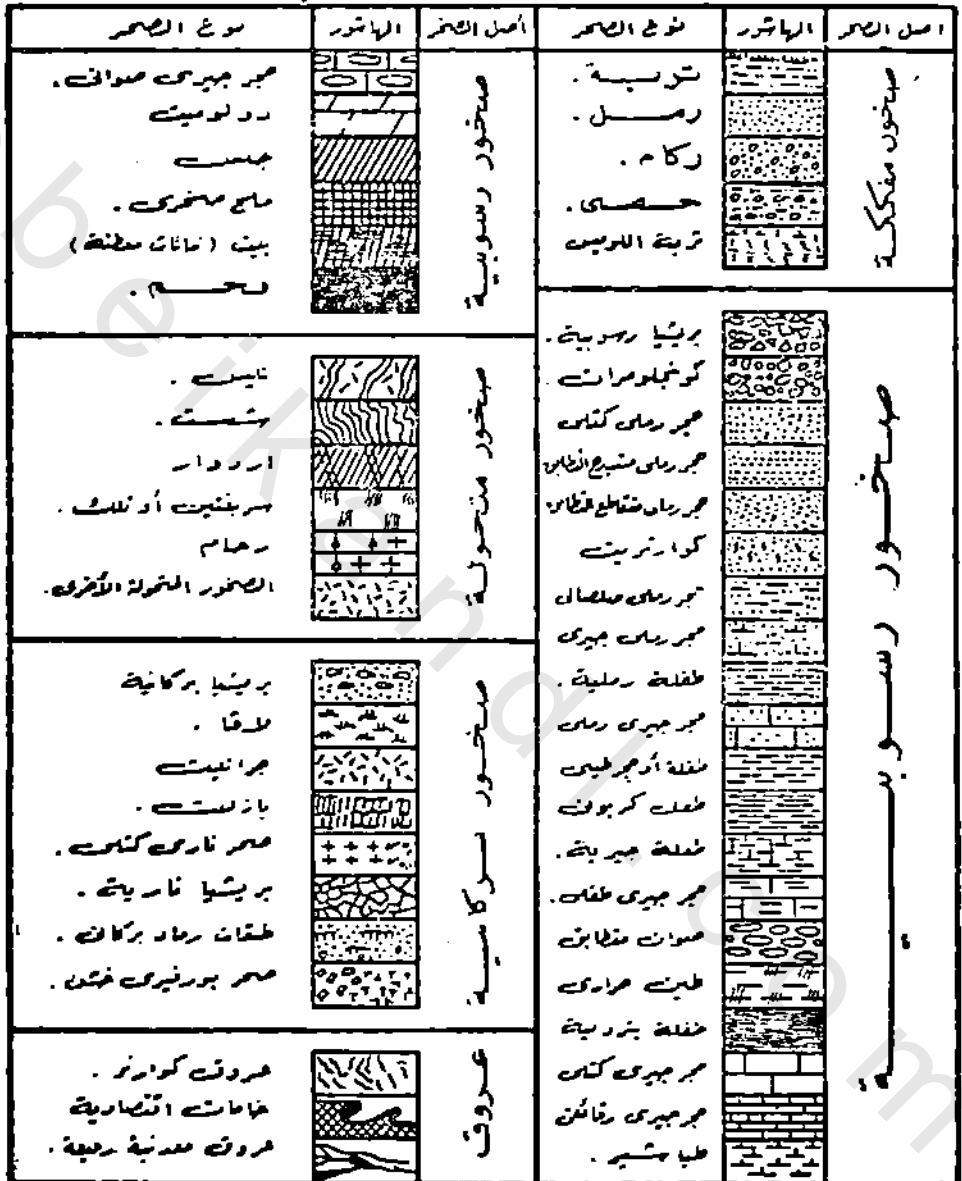 اصل الصخر
الهاشور
نوع الصخر
صخور مفككة
تربة .
رمل .
ركام .
حصى .
تربة اللوس
صخور رسوبية
بريشيا رسوبية .
كونجلومرات .
حجر رملى كتلى
حجر رملى متدرج التطابق
حجر رملى متقاطع التطابق
كوارتزيت
حجر رملى صلصالى
حجر رملى جيرى
طفلة رملية .
حجر جيرى رملى
طفلة أو حجر طينى
طفل كربونى
طفلة جيرية .
حجر جيرى طفلى .
صوان متطابق
طين حرارى
طفلة بترولية
حجر جيرى كتلى
حجر جيرى رقائقى
طباشير .
أصل الصخر
الهاشور
نوع الصخر
صخور رسوبية
حجر جيرى صوانى .
دولوميت
جبس
ملح صخرى .
بيت ( نباتات معطنة )
فحم .
صخور متحولة
نايس .
شست .
اردواز
سربنتين أو تلك .
رخام
الصخور المتحولة الأخرى .
صخور بركانية
بريشيا بركانية
طوفا .
جرانيت
بازلت .
صخر نارى كتلى .
بريشيا نارية .
طبقات رماد بركانى .
صخر بورفيرى خشن .
عروق
عروق كوارتز .
خامات اقتصادية
عروق معدنية رفيعة .
beikendi.com